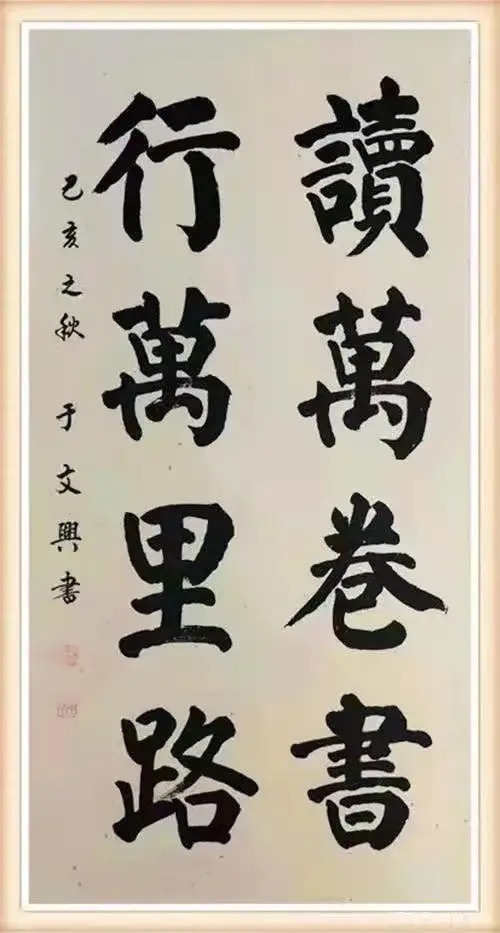 讀萬卷書
行萬里路
己亥之秋 于文興書